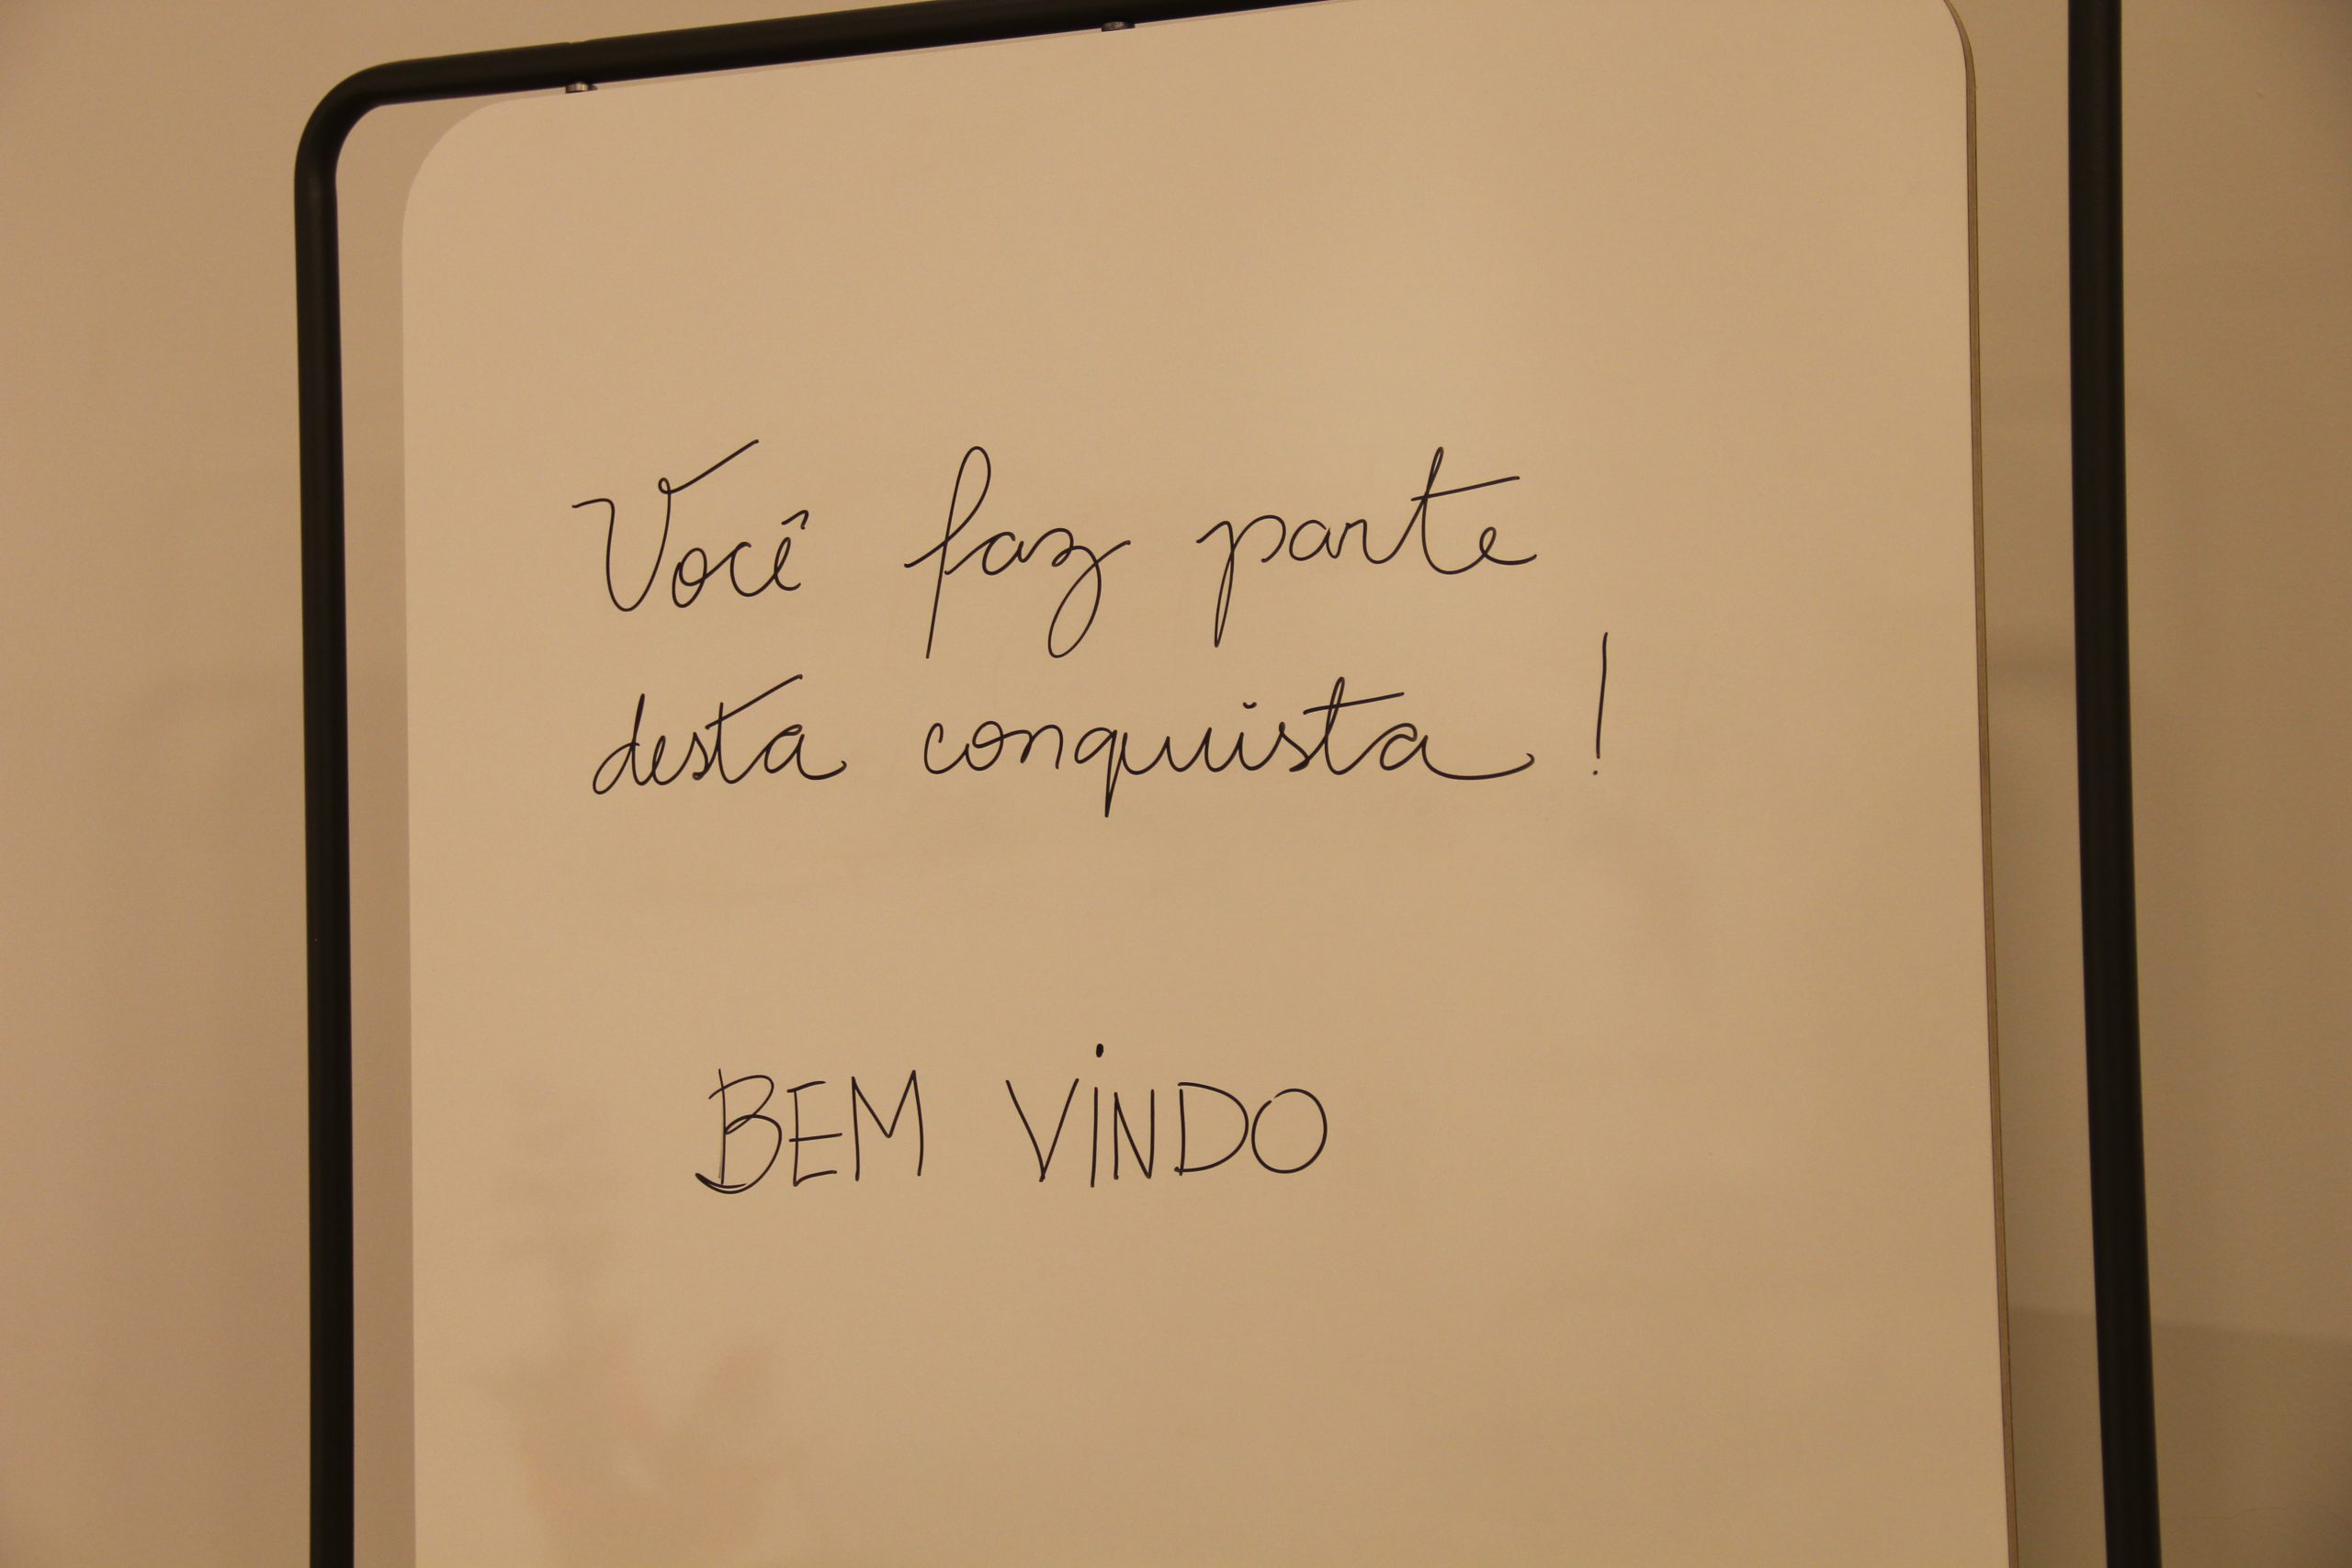 Você faz parte
desta conquista !
BEM VINDO